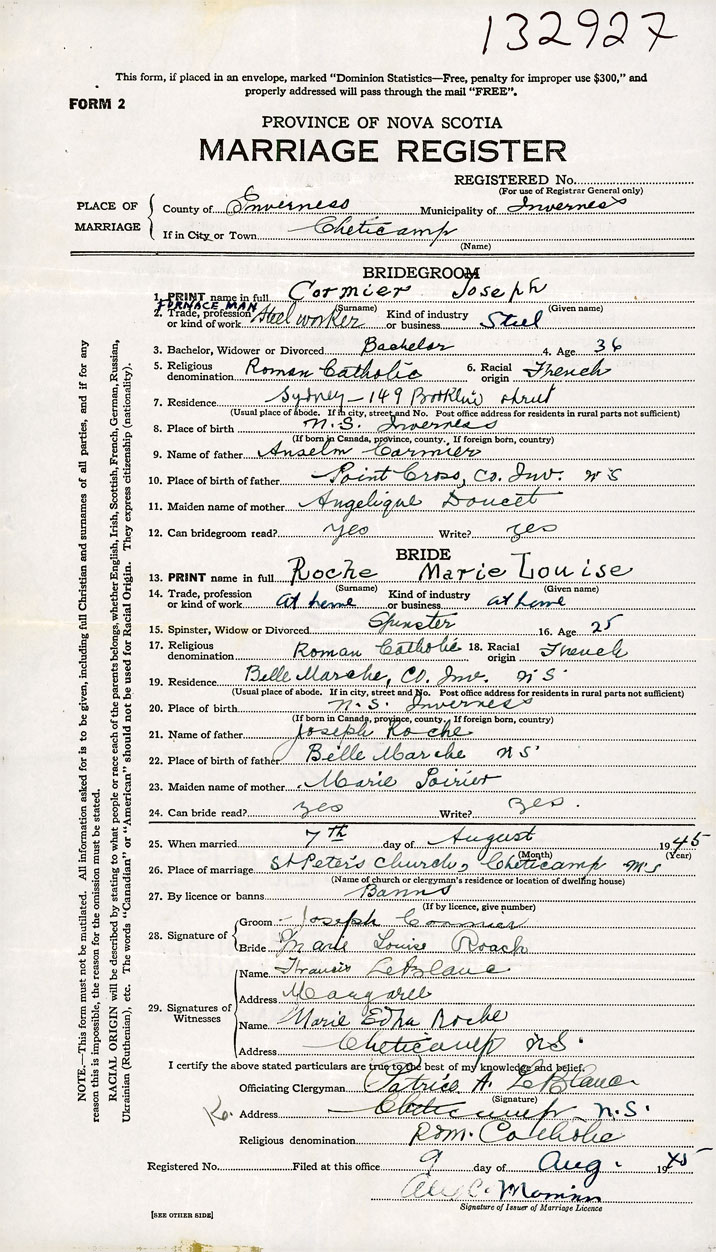 132927
This form, if placed in an envelope, marked "Dominion Statistics—Free, penalty for improper use $300," and
properly addressed will pass through the mail "FREE".
FORM 2
PROVINCE OF NOVA SCOTIA
MARRIAGE REGISTER
REGISTERED No.
(For use of Registrar General only)
PLACE OF MARRIAGE
County of Inverness Municipality of Inverness
If in City or Town Cheticamp
(Name)
BRIDEGROOM
1. PRINT name in full Cormier Joseph
(Surname) (Given name)
FURNACE MAN
2. Trade, profession or kind of work Steel worker Kind of industry or business Steel
3. Bachelor, Widower or Divorced Bachelor 4. Age 36
5. Religious denomination Roman Catholic 6. Racial origin French
7. Residence Sydney - 149 street
(Usual place of abode. If in city, street and No. Post office address for residents in rural parts not sufficient)
8. Place of birth N.S. Inverness
(If born in Canada, province, county. If foreign born, country)
9. Name of father Anselm Cormier
10. Place of birth of father Point Cross, Co. Inv. N S
11. Maiden name of mother Angelique Doucet
12. Can bridegroom read? yes Write? yes
BRIDE
13. PRINT name in full Roche Marie Louise
(Surname) (Given name)
14. Trade, profession or kind of work At home Kind of industry or business at home
15. Spinster, Widow or Divorced Spinster 16. Age 25
17. Religious denomination Roman Catholic 18. Racial origin French
19. Residence Belle Marche, Co. Inv. N S
(Usual place of abode. If in city, street and No. Post office address for residents in rural parts not sufficient)
20. Place of birth N.S. Inverness
(If born in Canada, province, county. If foreign born, country)
21. Name of father Joseph Roche
22. Place of birth of father Belle Marche N S
23. Maiden name of mother Marie Poirier
24. Can bride read? yes Write? yes.
25. When married 7th day of August 1945
(Month) (Year)
26. Place of marriage St Peter's church, Cheticamp N S
(Name of church or clergyman's residence or location of dwelling house)
27. By licence or banns Banns
(If by licence, give number)
28. Signature of
Groom Joseph Cormier
Bride Marie Louise Roach
29. Signatures of Witnesses
Name Francis LeBlanc
Address Margaree
Name Marie Edna Roche
Address Cheticamp N.S.
I certify the above stated particulars are true to the best of my knowledge and belief.
Officiating Clergyman Patrice A. LeBlanc
(Signature)
Address Cheticamp N.S.
Religious denomination Rom. Catholic
Registered No. Filed at this office 9 day of Aug. 1945
Signature of Issuer of Marriage Licence
[SEE OTHER SIDE]
NOTE.—This form must not be mutilated. All information asked for is to be given, including full Christian and surnames of all parties, and if for any
reason this is impossible, the reason for the omission must be stated.
RACIAL ORIGIN will be described by stating to what people or race each of the parents belongs, whether English, Irish, Scottish, French, German, Russian,
Ukrainian (Ruthenian), etc. The words "Canadian" or "American" should not be used for Racial Origin. They express citizenship (nationality).